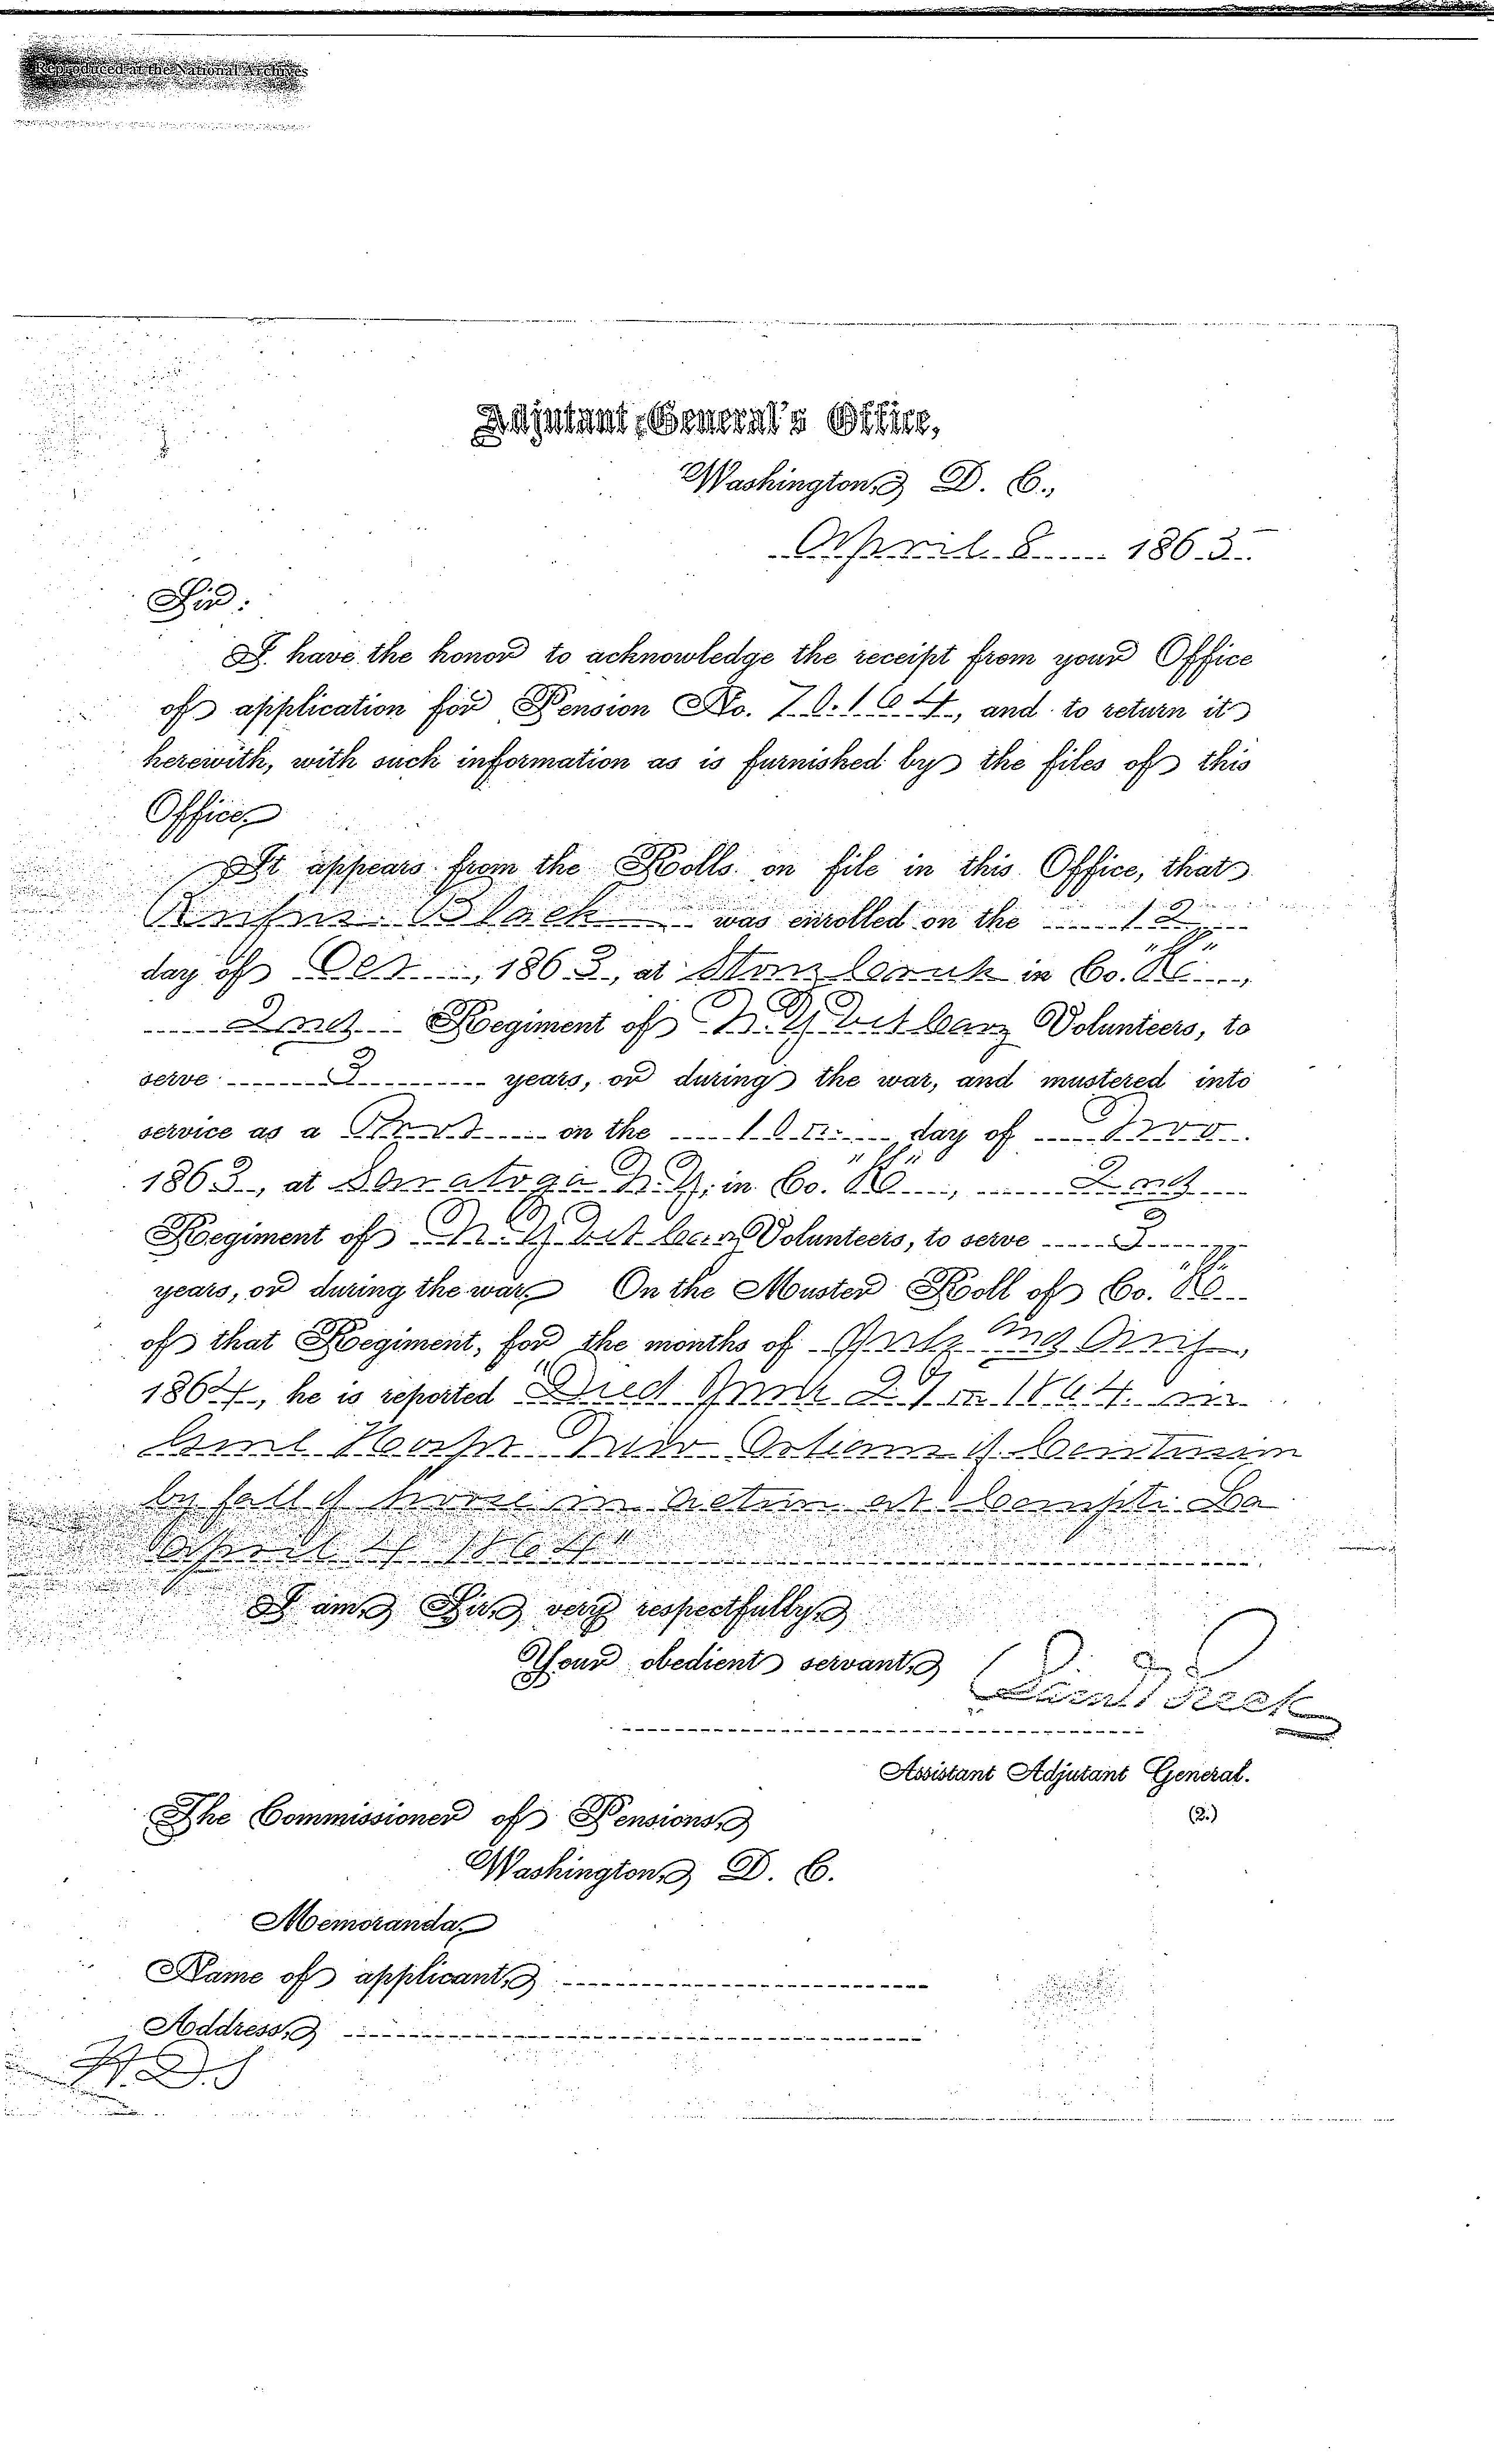 Reproduced at the National Archives
Adjutant General's Office,
Washington, D. C.,
April 8 1865
Sir:
I have the honor to acknowledge the receipt from your Office
of application for Pension No. 7 and to return it
herewith, with such information as is furnished by the files of this
Office.
It appears from the Rolls on file in this Office, that
Black was enrolled on the 12
day of Oct, 1863, at in Co.
2nd Regiment of N. Y. Vet Cav Volunteers, to
serve 3 years, or during the war, and mustered into
service as a on the day of
1863, at Saratoga N. Y. in Co. 2nd
Regiment of N. Y. Vet Cav Volunteers, to serve 3
years, or during the war. On the Muster Roll of Co.
of that Regiment, for the months of July and Aug
1864, he is reported "Died June 1864. in
Genl Hosp New Orleans of Contusion
by fall of horse in action at Compti La
April 1864"
I am, Sir, very respectfully,
Your obedient servant,
Assistant Adjutant General.
(2.)
The Commissioner of Pensions,
Washington, D. C.
Memoranda.
Name of applicant,
Address,